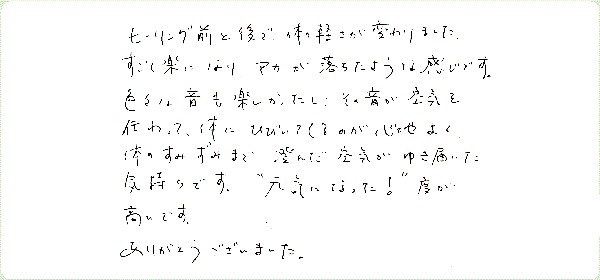 ヒーリング前と後で、体の軽さが変わりました。
すごく楽になり、アカが落ちたような感じです。
色々な音も楽しかったし、その音が空気を
伝わって、体にひびいてくるのが心地よく
体のすみずみまで澄んだ空気がゆき届いた
気持ちです。“元気になった!”度が
高いです。
ありがとうございました。